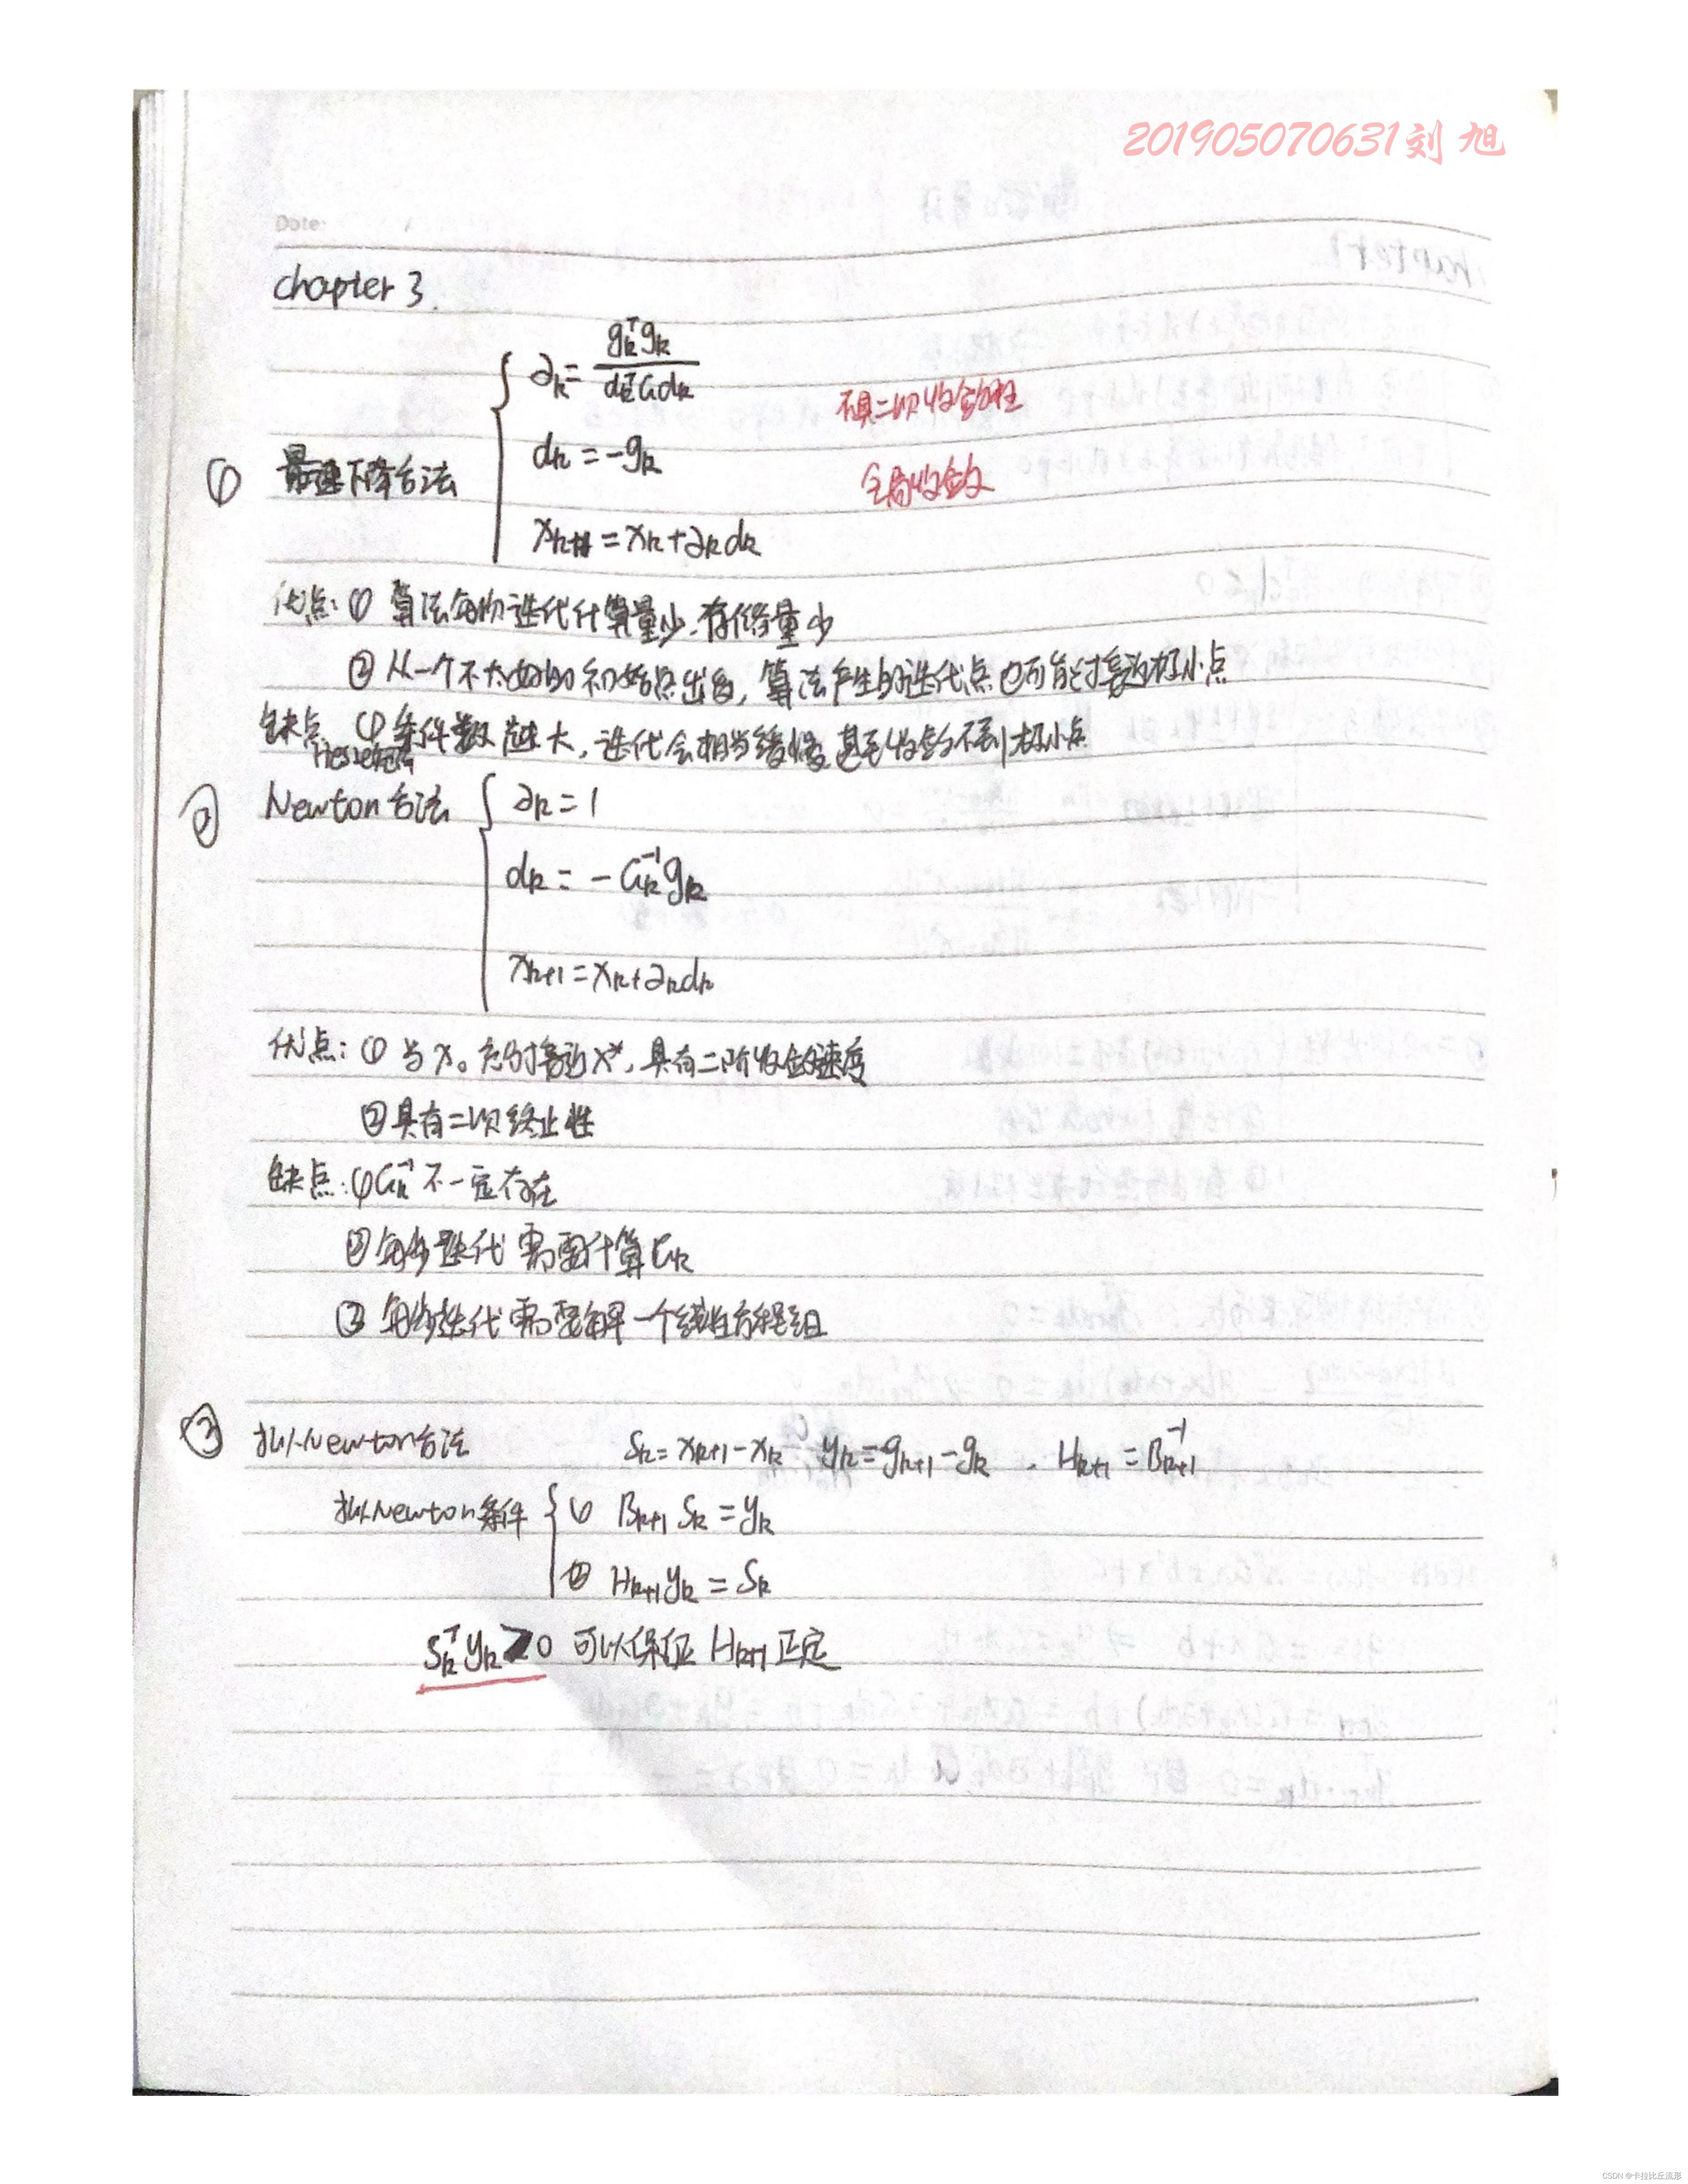 201905070631刘旭
Date:
chapter 3.
∂k = gkᵀgk / dkᵀGdk
不具二次收敛性
dk = -gk
① 最速下降方法
全局收敛
xk+1 = xk + ∂kdk
优点: ① 算法每次迭代计算量少. 存储量少
② 从一个不太好的初始点出发, 算法产生的迭代点也可能接近极小点
缺点 ① 条件数越大, 迭代会相当缓慢, 甚至收敛不到极小点
Hesse矩阵
② Newton方法 ∂k = 1
dk = -Gk⁻¹gk
xk+1 = xk + ∂kdk
优点: ① 当x₀充分接近x*, 具有二阶收敛速度
② 具有二次终止性
缺点: ① Gk⁻¹不一定存在
② 每步迭代需要计算Gk
③ 每步迭代需要解一个线性方程组
③ 拟Newton方法 Sk = xk+1 - xk yk = gk+1 - gk . Hk+1 = Bk+1⁻¹
拟Newton条件 ① Bk+1 Sk = yk
② Hk+1yk = Sk
Skᵀyk>0 可以保证 Hk+1 正定
CSDN @卡拉比丘流形